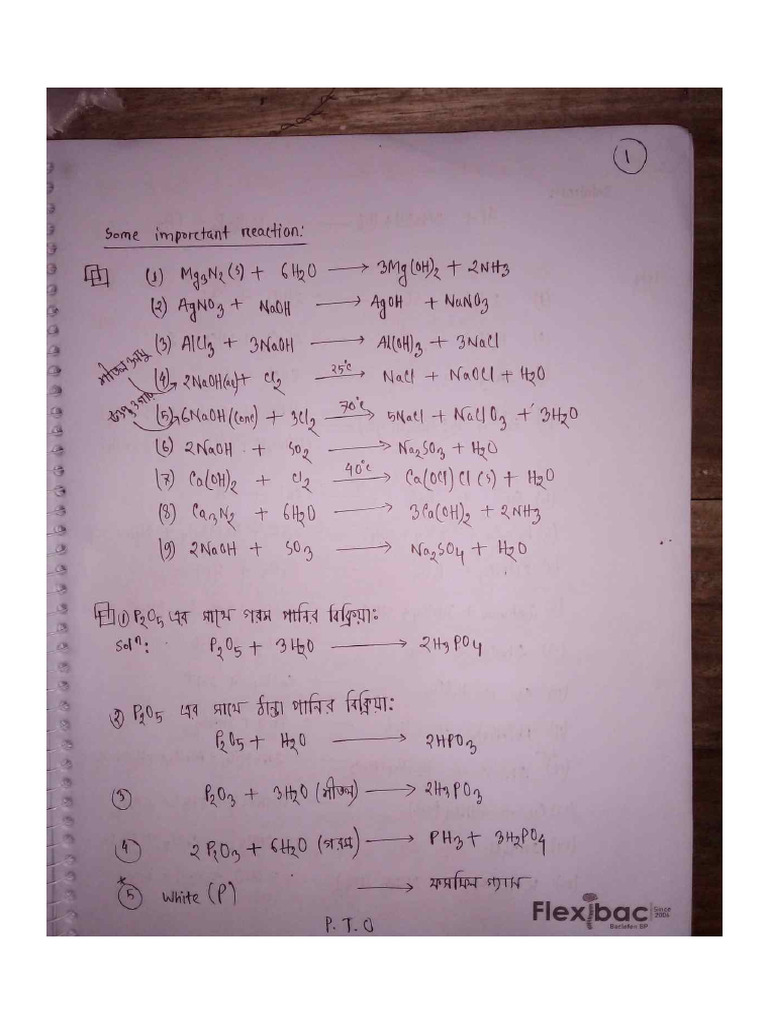 1
Some important reaction:
(1) Mg3N2 (s) + 6H2O → 3Mg(OH)2 + 2NH3
(2) AgNO3 + NaOH → AgOH + NaNO3
(3) AlCl3 + 3NaOH → Al(OH)3 + 3NaCl
(4) 2NaOH(aq) + Cl2 25°C → NaCl + NaOCl + H2O
(5) 6NaOH(conc) + 3Cl2 70°C → 5NaCl + NaClO3 + 3H2O
(6) 2NaOH + SO2 → Na2SO3 + H2O
(7) Ca(OH)2 + Cl2 40°C → Ca(OCl) Cl (s) + H2O
(8) Ca3N2 + 6H2O → 3Ca(OH)2 + 2NH3
(9) 2NaOH + SO3 → Na2SO4 + H2O
① P2O5 এর সাথে গরম পানির বিক্রিয়া:
Solⁿ: P2O5 + 3H2O → 2H3PO4
② P2O5 এর সাথে ঠান্ডা পানির বিক্রিয়া:
P2O5 + H2O → 2HPO3
③ P2O3 + 3H2O (শীতল) → 2H3PO3
④ 2P2O3 + 6H2O (গরম) → PH3 + 3H2PO4
*⑤ White (P) → ফসফিন গ্যাস
P.T.O
Flexibac Since 2004